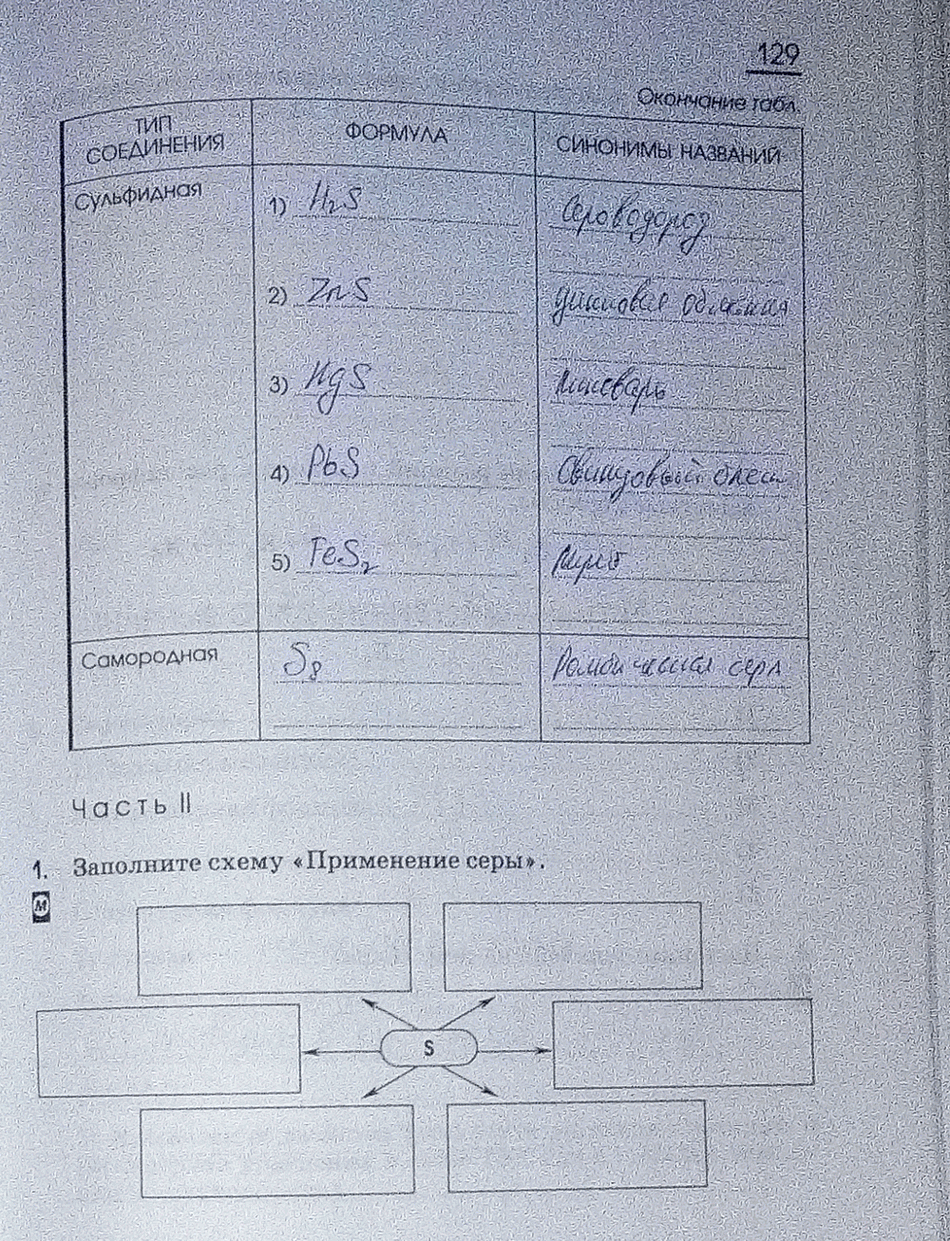 129
Окончание табл.
ТИП СОЕДИНЕНИЯ
ФОРМУЛА
СИНОНИМЫ НАЗВАНИЙ
Сульфидная
1) H₂S
Сероводород
2) ZnS
цинковая обманка
3) HgS
Киноварь
4) PbS
Свинцовый блеск
5) FeS₂
Пирит
Самородная
S₈
Ромбическая сера
Часть II
1. Заполните схему «Применение серы».
М
S